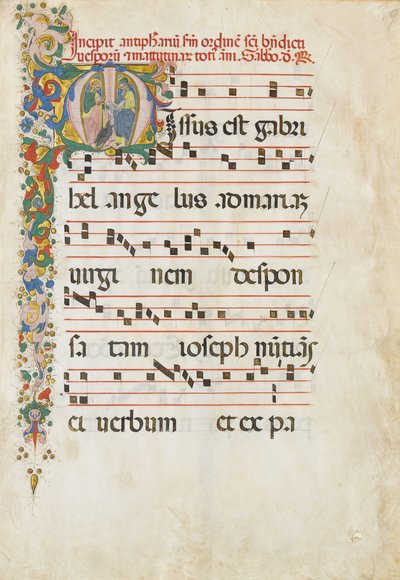 Incipit antiphanũ scđm ordinẽ sci bñdicti
uesporũ ⁊ matutinaꝝ toti ãni. Sabbo. đ. ꝶ.
Missus est gabri
hel ange lus ad mariaꝫ
uirgi nem despon
sa tam ioseph nũtiãs
ei uerbum et ex pa